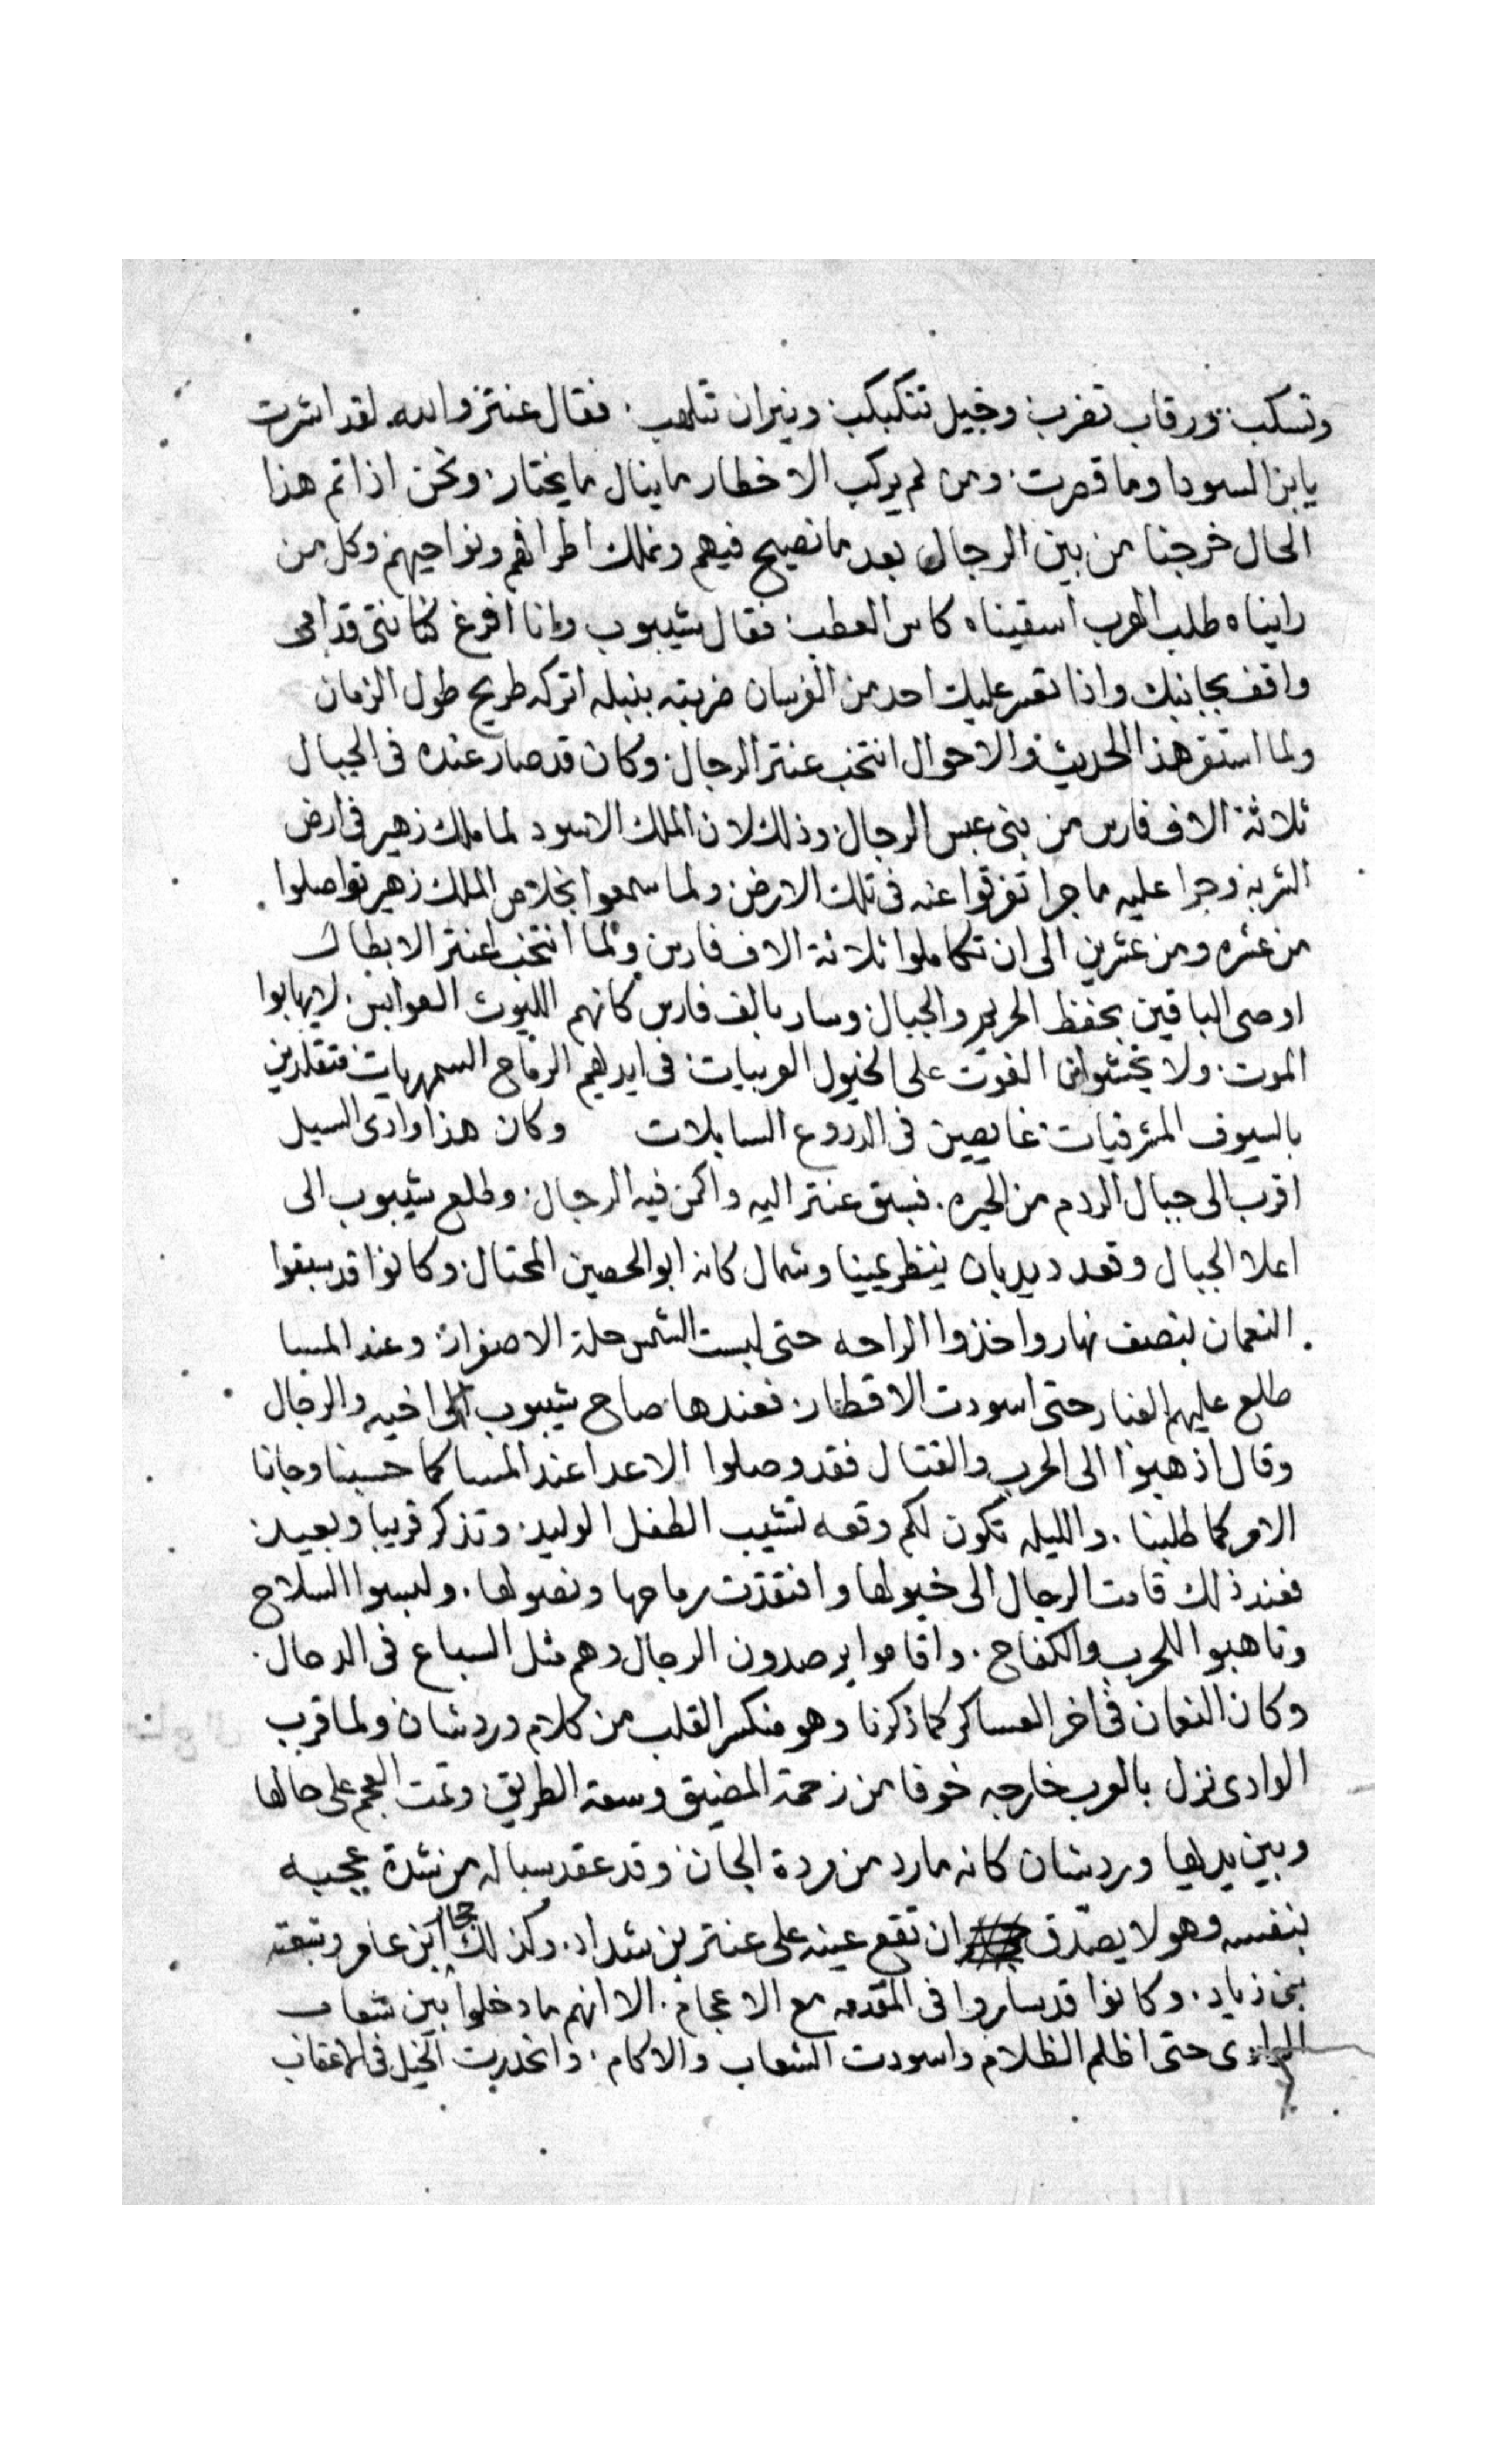 وتسكب. ورقاب تضرب. وخيل تتكبكب. ونيران تلهب. فقال عنتر والله لقد اشرت
يابن السودا وما قصرت. ومن لم يركب الاخطار ما ينال ما يختار. ونحن اذا تم هذا
الحال خرجنا من بين الرجال بعد ما نصيح فيهم ونملك اطرافهم ونواحيهم وكل من
رايناه طلب الهرب اسقيناه كاس العطب. فقال شيبوب وانا افرغ كنانتي قدامي
واقف بجانبك واذا تعسر عليك احد من الفرسان ضربته بنبله اتركه طريح طول الزمان
ولما استقر هذا الحديث والاحوال انتخب عنتر الرجال. وكان قد صار عنده في الجبال
ثلاثة الاف فارس من بني عبس الرجال. وذلك لان الملك الاسود لما ملك زهير في ارض
الشربة وجرا عليه ما جرا تفرقوا عنه في تلك الارض ولما سمعوا بخلاص الملك زهير تواصلوا
من عشره ومن عشرين الى ان تكاملوا ثلاثة الاف فارس ولما انتخب عنتر الابطال
اوصى الباقين بحفظ الحريم والجبال. وسار بالف فارس كانهم الليوث العوابس. لا يهابوا
الموت. ولا يخشوا من الفوت على الخيول العربيات. في ايديهم الرماح السمهريات. متقلدين
بالسيوف المشرفيات. غايصين في الدروع السابلات وكان هذا وادي السيل
اقرب الى جبال الردم من الحيره. فسبق عنتر اليه واكمن فيه الرجال. وطلع شيبوب الى
اعلا الجبال وقعد ديدبان ينظر يمينا وشمال كانه ابو الحصين المحتال. وكانوا قد سبقوا
النعمان بنصف نهار واخذوا الراحه حتى لبست الشمس حلة الاصفرار. وعند المسا
طلع عليهم الغبار حتى اسودت الاقطار. فعندها صاح شيبوب الى اخيه والرجال
وقال اذهبوا الى الحرب والقتال فقد وصلوا الاعدا عند المسا كما حسبنا وجانا
الامر كما طلبنا. والليله تكون لكم وقعه تشيب الطفل الوليد. وتذكر قريبا وبعيد.
فعند ذلك قامت الرجال الى خيولها وافتقدت رماحها ونصولها. ولبسوا السلاح
وتاهبوا اللحرب والكفاح. واقاموا يرصدون الرجال وهم مثل السباع في الدحال.
وكان النعمان في اخر العساكر كما ذكرنا وهو منكسر القلب من كلام وردشان ولما قرب
الوادي نزل بالعرب خارجه خوفا من زحمة المضيق وسعة الطريق. وتمت العجم على حالها
وبين يديها وردشان كانه مارد من مردة الجان. وقد عقد سباله من شدة عجبه
بنفسه وهو لا يصدق ان تقع عينه على عنتر بن شداد. وكذلك حجار ابن عامر وتبعته
بني زياد. وكانوا قد ساروا في المقدمه مع الاعجام. الا انهم ما دخلوا بين شعاب
الوادي حتى اظلم الظلام واسودت الشعاب والاكام. وانحدرت الخيل في الاعقاب